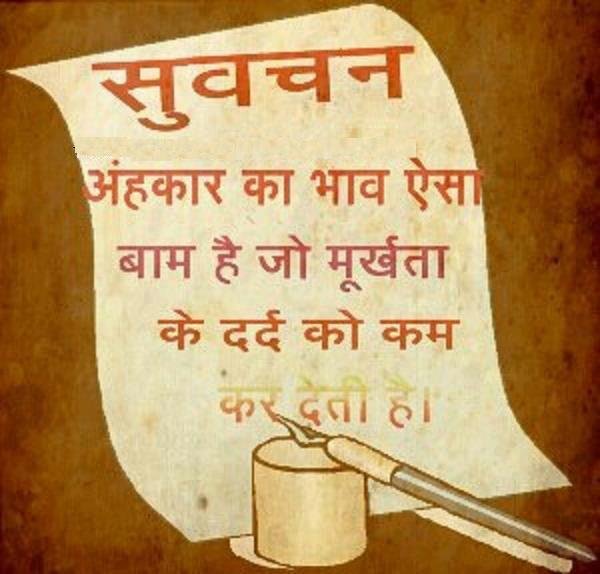 सुवचन
अंहकार का भाव ऐसा
बाम है जो मूर्खता
के दर्द को कम
कर देती है।